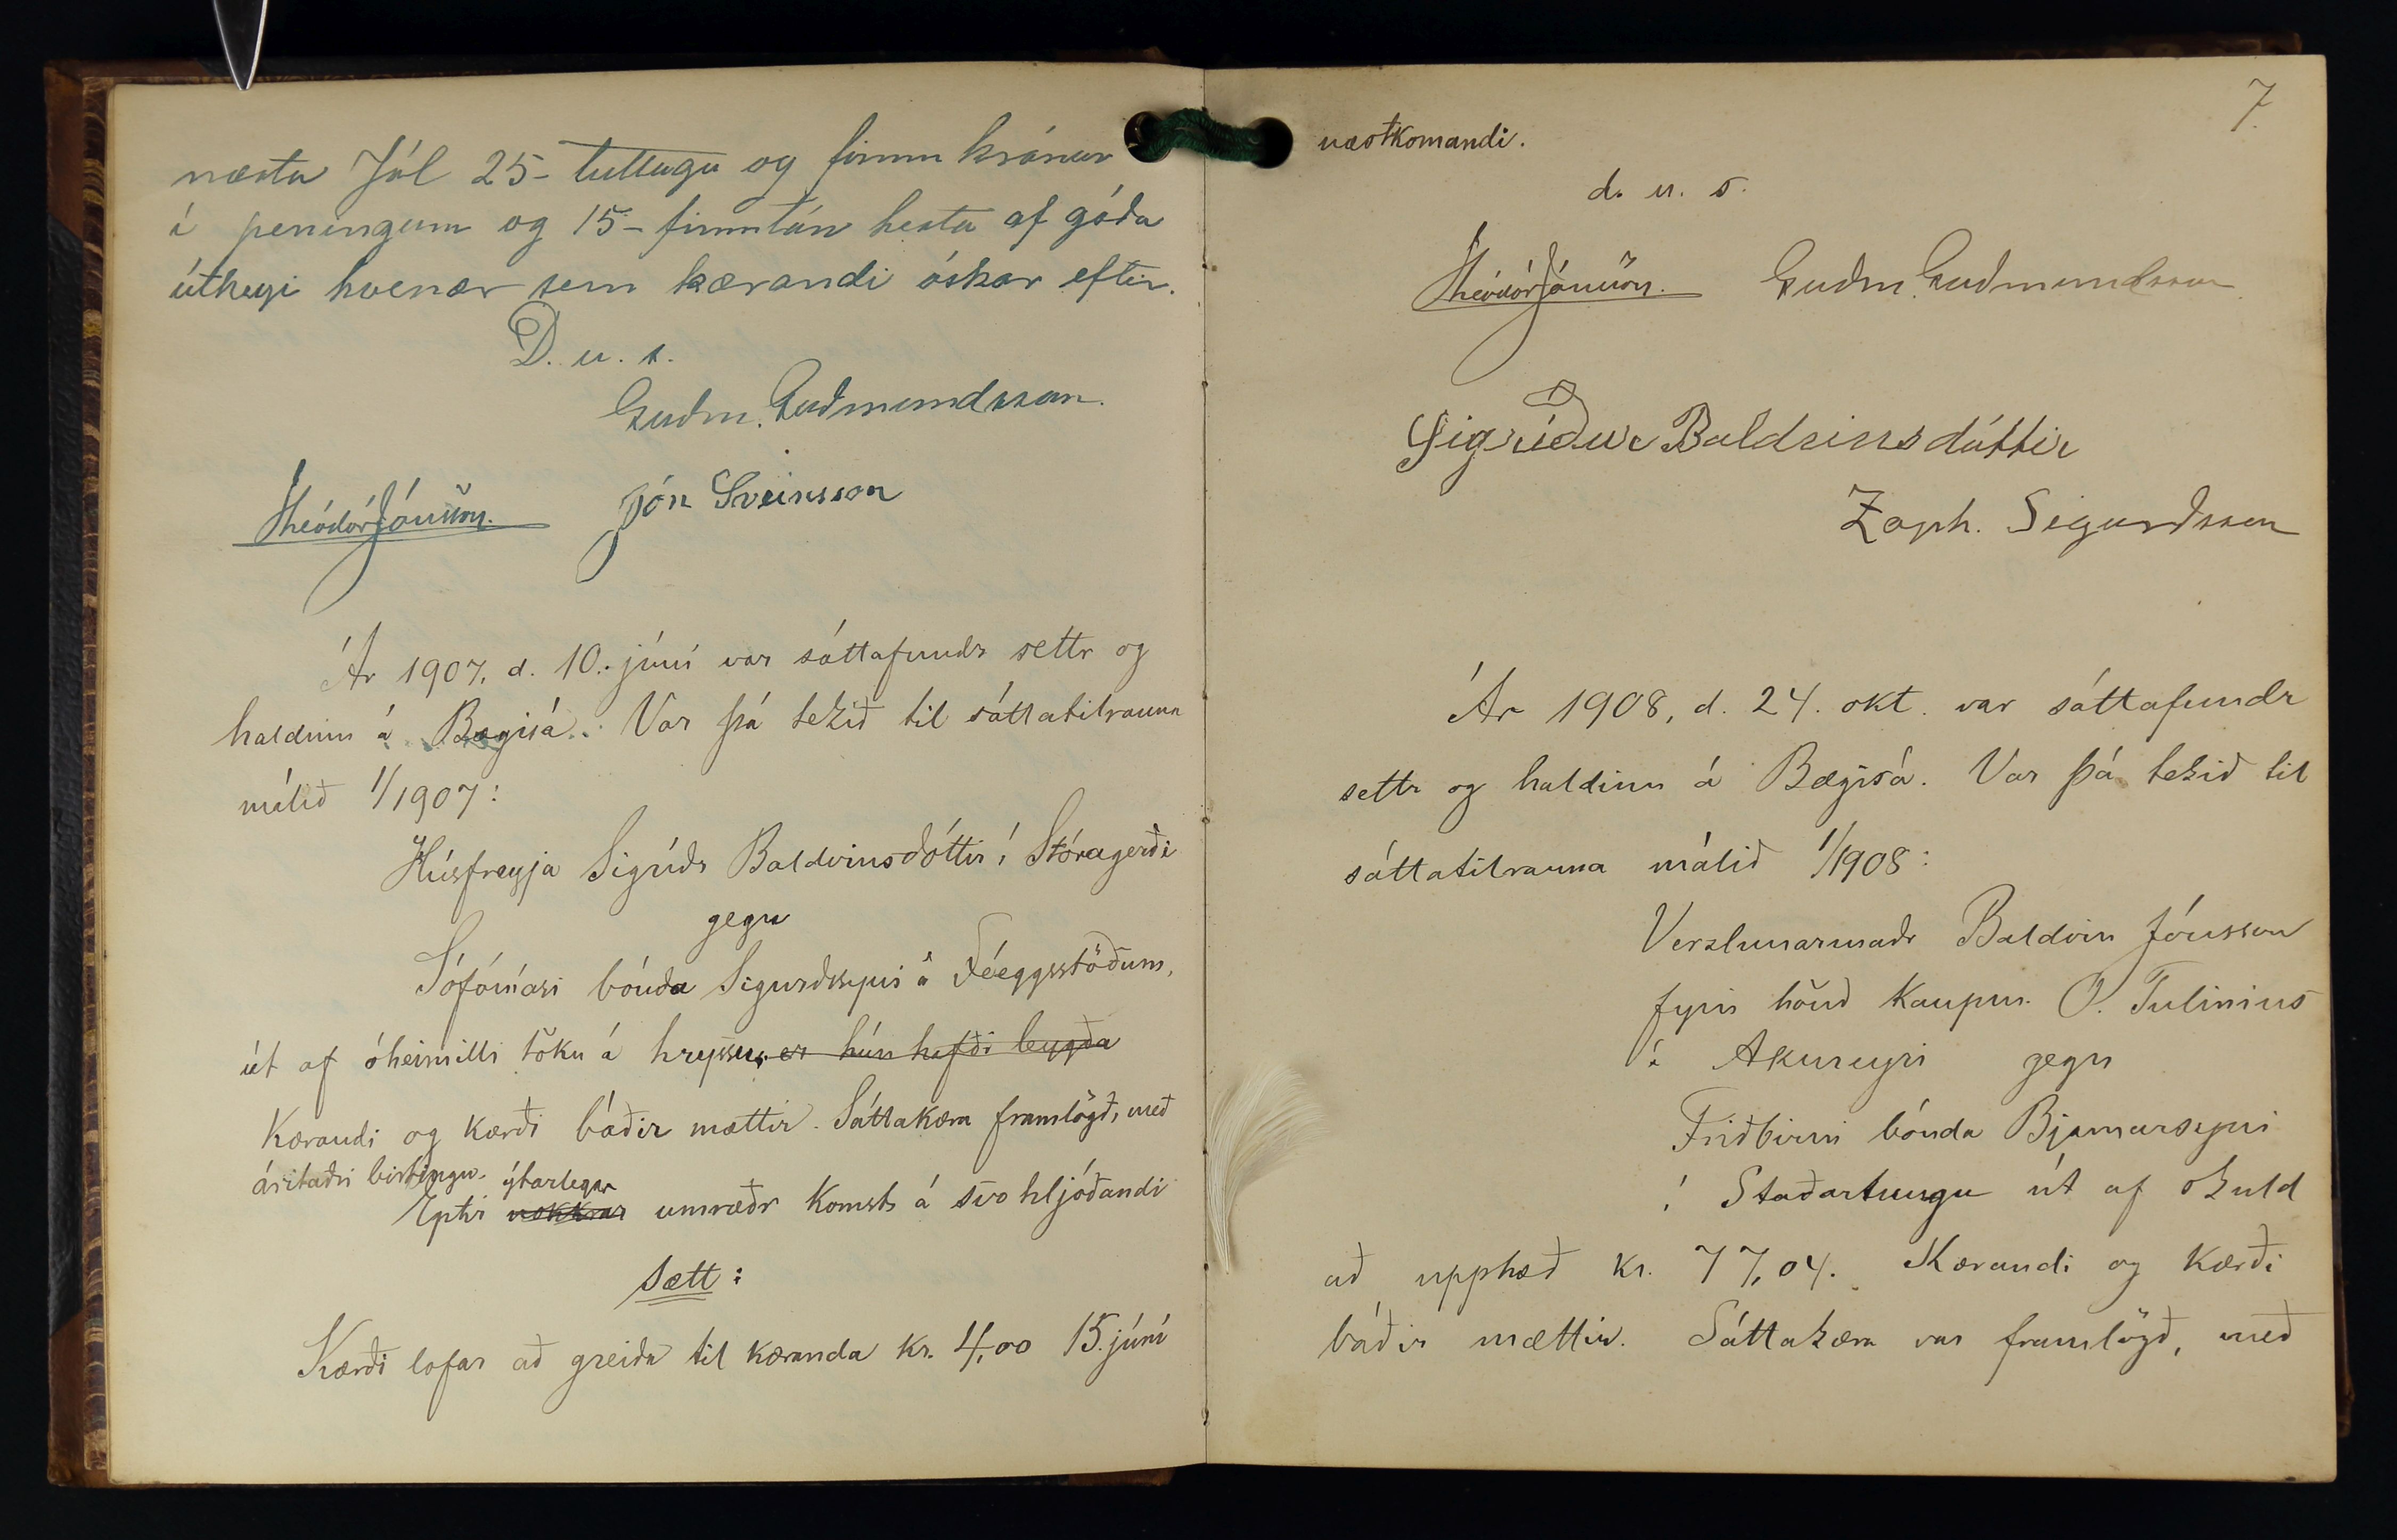 næsta Jól 25- tuttugu og fimm krónur
í peningum og 15- fimmtán hesta af góðu
útheyi hvenær sem kærandi óskar eftir.
D. u. s.
Guðm. Guðmundsson.
Theódór Jónsson. Jón Sveinsson
Ár 1907, d. 10. júní var sáttafundr settr og
haldinn á Bægisá. Var þá tekið til sáttatilrauna
málið 1/1907:
Húsfreyja Sigríðr Baldvinsdóttir í Stóragerði
gegn
Sófóníasi bónda Sigurðssyni á Féeggsstöðum,
út af óheimilli töku á hryssu, er hún hafði leygða
Kærandi og kærði báðir mættir. Sáttakæra framlögð, með
áritaðri birtingu. ýtarlegar
Eptir nokkrar umræðr komst á svo hljóðandi
Sætt:
Kærði lofar að greiða til kæranda kr. 4,00 15. júní
7.
næstkomandi.
d. u. s.
Theódór Jónsson. Guðm. Guðmundsson
Sigríður Baldvinsdóttir
Zoph. Sigurðsson
Ár 1908, d. 24. okt. var sáttafundr
settr og haldinn á Bægisá. Var þá tekið til
sáttatilrauna málið 1/1908:
Verzlunarmaðr Baldvin Jónsson
fyrir hönd kaupm. O. Tulinius
í Akureyri gegn
Friðbirni bónda Bjarnarsyni
í Staðartungu út af skuld
að upphæð kr. 77,04. Kærandi og kærði
báðir mættir. Sáttakæra var framlögð, með